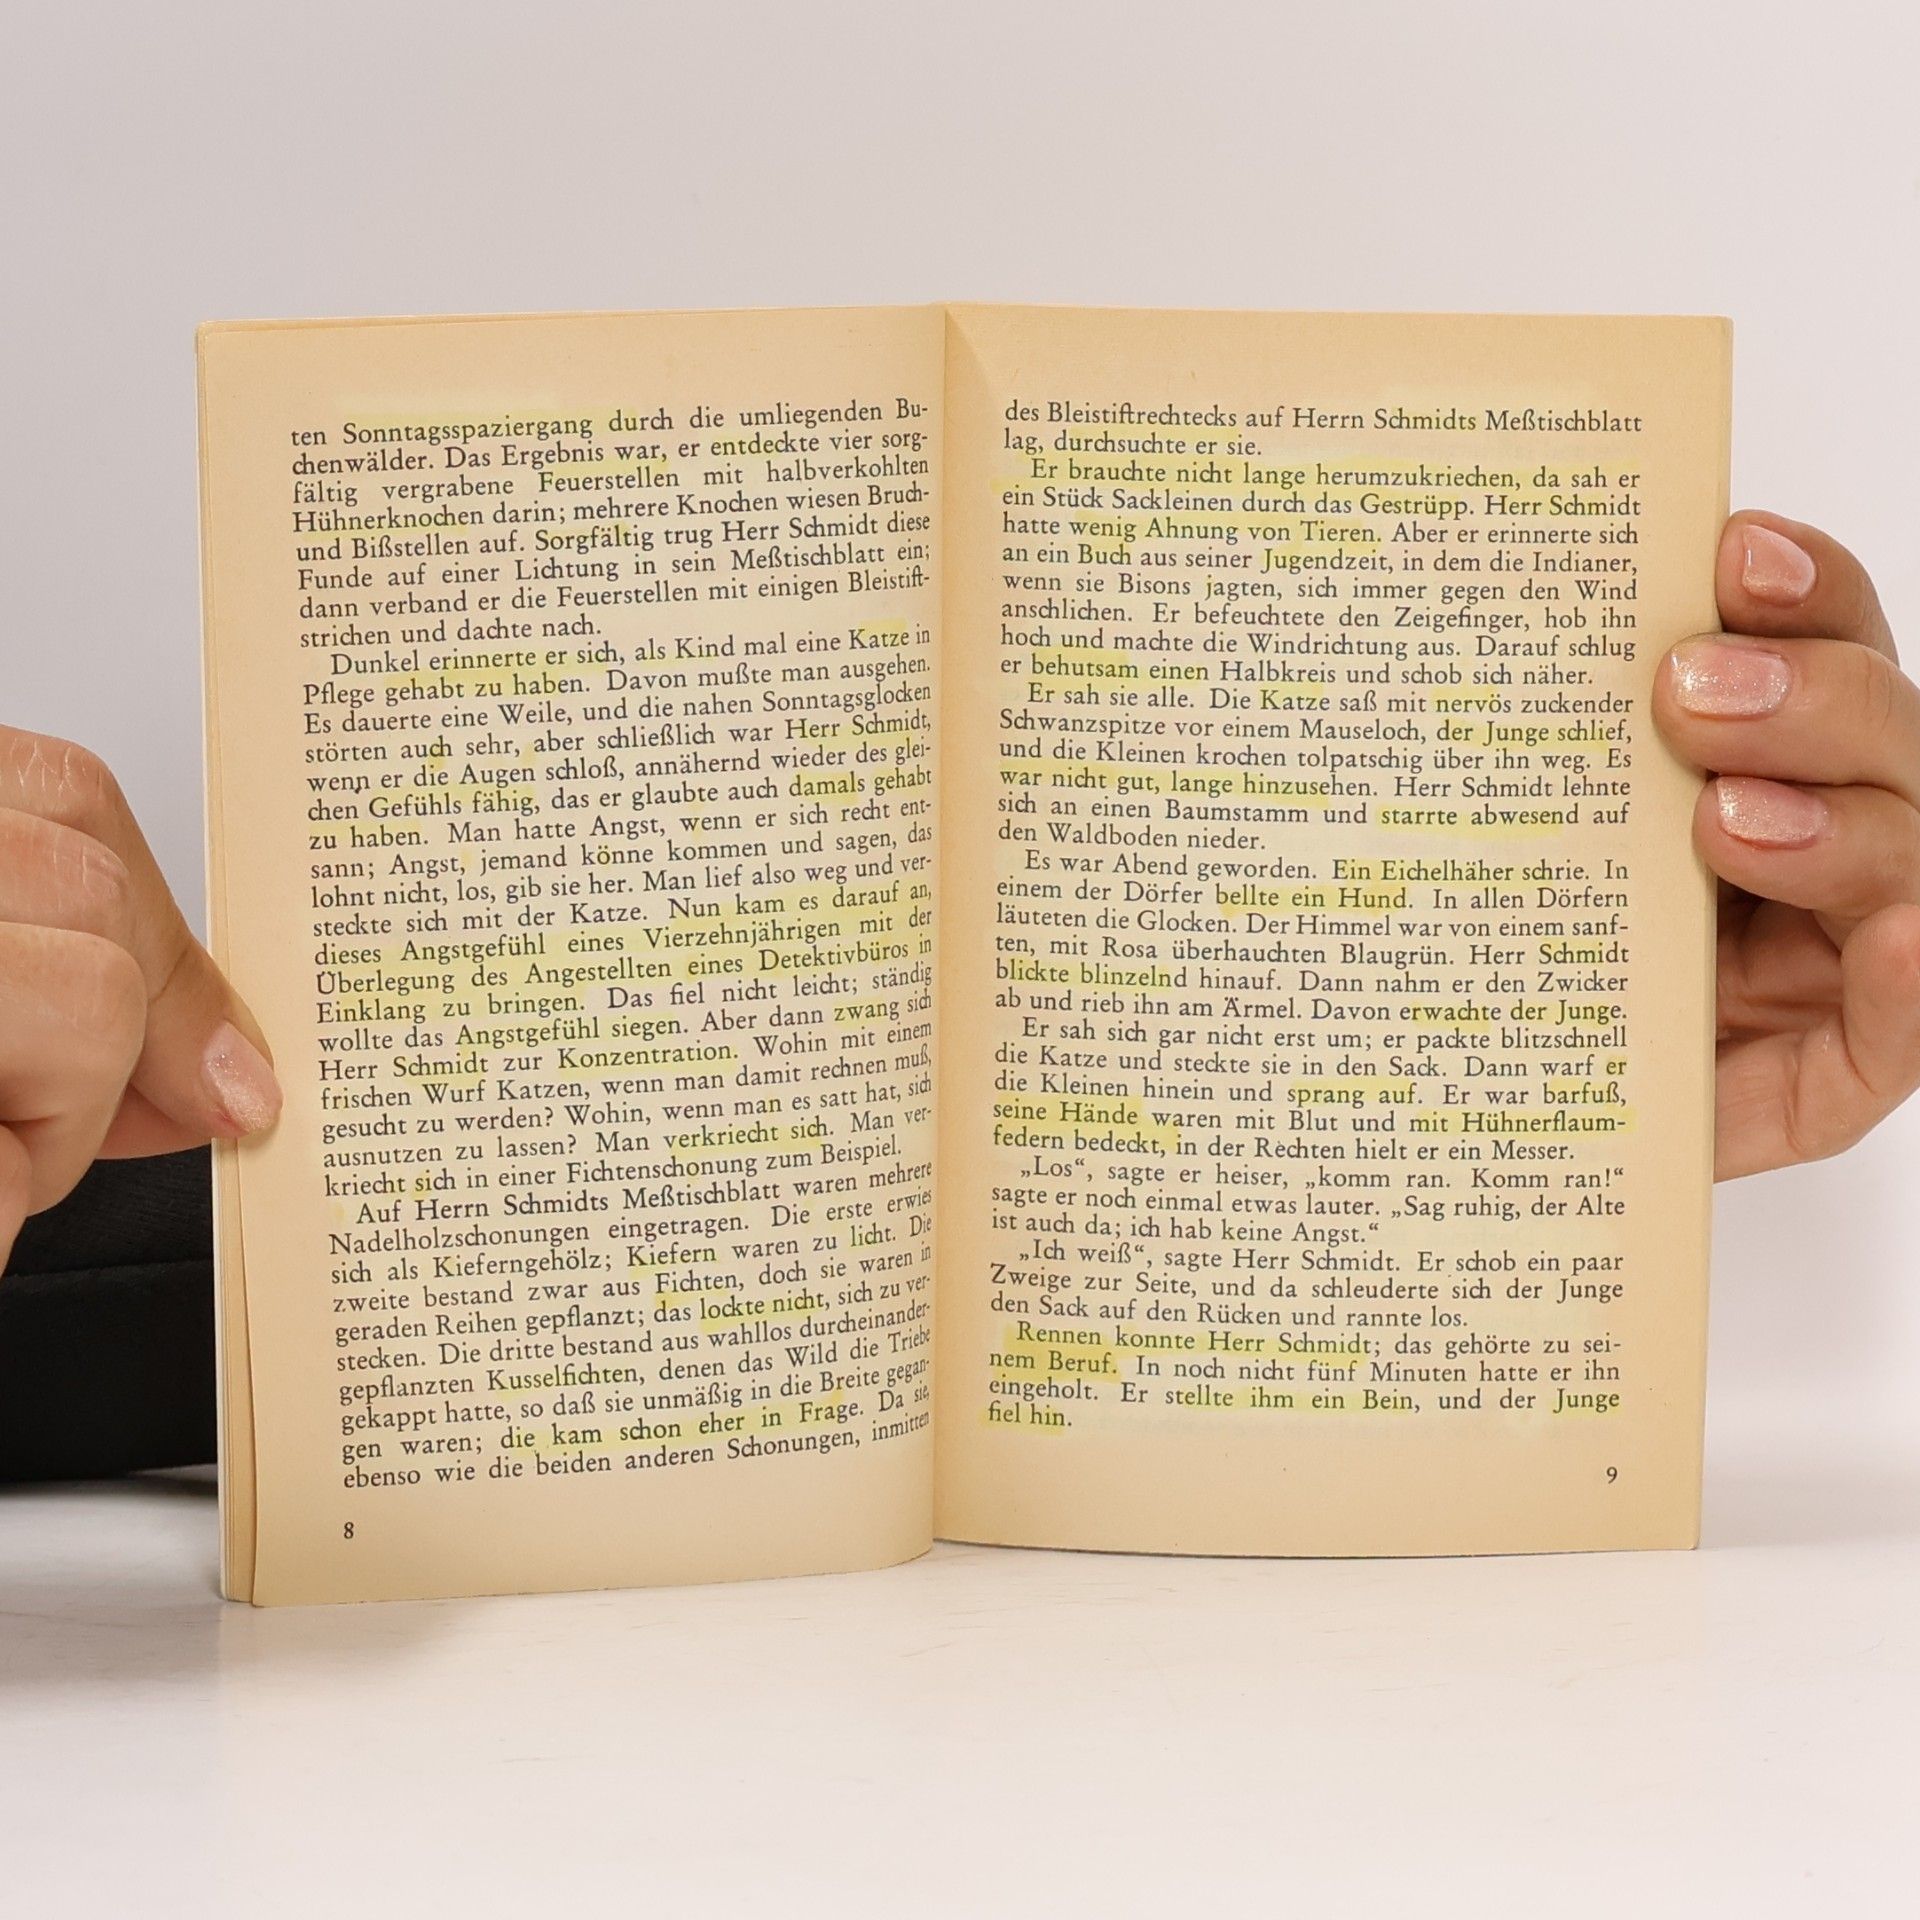 ten Sonntagsspaziergang durch die umliegenden Bu-
chenwälder. Das Ergebnis war, er entdeckte vier sorg-
fältig vergrabene Feuerstellen mit halbverkohlten
Hühnerknochen darin; mehrere Knochen wiesen Bruch-
und Bißstellen auf. Sorgfältig trug Herr Schmidt diese
Funde auf einer Lichtung in sein Meßtischblatt ein;
dann verband er die Feuerstellen mit einigen Bleistift-
strichen und dachte nach.
Dunkel erinnerte er sich, als Kind mal eine Katze in
Pflege gehabt zu haben. Davon mußte man ausgehen.
Es dauerte eine Weile, und die nahen Sonntagsglocken
störten auch sehr, aber schließlich war Herr Schmidt,
wenn er die Augen schloß, annähernd wieder des glei-
chen Gefühls fähig, das er glaubte auch damals gehabt
zu haben. Man hatte Angst, wenn er sich recht ent-
sann; Angst, jemand könne kommen und sagen, das
lohnt nicht, los, gib sie her. Man lief also weg und ver-
steckte sich mit der Katze. Nun kam es darauf an,
dieses Angstgefühl eines Vierzehnjährigen mit der
Überlegung des Angestellten eines Detektivbüros in
Einklang zu bringen. Das fiel nicht leicht; ständig
wollte das Angstgefühl siegen. Aber dann zwang sich
Herr Schmidt zur Konzentration. Wohin mit einem
frischen Wurf Katzen, wenn man damit rechnen muß,
gesucht zu werden? Wohin, wenn man es satt hat, sich
ausnutzen zu lassen? Man verkriecht sich. Man ver-
kriecht sich in einer Fichtenschonung zum Beispiel.
Auf Herrn Schmidts Meßtischblatt waren mehrere
Nadelholzschonungen eingetragen. Die erste erwies
sich als Kieferngehölz; Kiefern waren zu licht. Die
zweite bestand zwar aus Fichten, doch sie waren in
geraden Reihen gepflanzt; das lockte nicht, sich zu ver-
stecken. Die dritte bestand aus wahllos durcheinander-
gepflanzten Kusselfichten, denen das Wild die Triebe
gekappt hatte, so daß sie unmäßig in die Breite gegan-
gen waren; die kam schon eher in Frage. Da sie,
ebenso wie die beiden anderen Schonungen, inmitten
8
des Bleistiftrechtecks auf Herrn Schmidts Meßtischblatt
lag, durchsuchte er sie.
Er brauchte nicht lange herumzukriechen, da sah er
ein Stück Sackleinen durch das Gestrüpp. Herr Schmidt
hatte wenig Ahnung von Tieren. Aber er erinnerte sich
an ein Buch aus seiner Jugendzeit, in dem die Indianer,
wenn sie Bisons jagten, sich immer gegen den Wind
anschlichen. Er befeuchtete den Zeigefinger, hob ihn
hoch und machte die Windrichtung aus. Darauf schlug
er behutsam einen Halbkreis und schob sich näher.
Er sah sie alle. Die Katze saß mit nervös zuckender
Schwanzspitze vor einem Mauseloch, der Junge schlief,
und die Kleinen krochen tolpatschig über ihn weg. Es
war nicht gut, lange hinzusehen. Herr Schmidt lehnte
sich an einen Baumstamm und starrte abwesend auf
den Waldboden nieder.
Es war Abend geworden. Ein Eichelhäher schrie. In
einem der Dörfer bellte ein Hund. In allen Dörfern
läuteten die Glocken. Der Himmel war von einem sanf-
ten, mit Rosa überhauchten Blaugrün. Herr Schmidt
blickte blinzelnd hinauf. Dann nahm er den Zwicker
ab und rieb ihn am Ärmel. Davon erwachte der Junge.
Er sah sich gar nicht erst um; er packte blitzschnell
die Katze und steckte sie in den Sack. Dann warf er
die Kleinen hinein und sprang auf. Er war barfuß,
seine Hände waren mit Blut und mit Hühnerflaum-
federn bedeckt, in der Rechten hielt er ein Messer.
„Los“, sagte er heiser, „komm ran. Komm ran!“
sagte er noch einmal etwas lauter. „Sag ruhig, der Alte
ist auch da; ich hab keine Angst.“
„Ich weiß“, sagte Herr Schmidt. Er schob ein paar
Zweige zur Seite, und da schleuderte sich der Junge
den Sack auf den Rücken und rannte los.
Rennen konnte Herr Schmidt; das gehörte zu sei-
nem Beruf. In noch nicht fünf Minuten hatte er ihn
eingeholt. Er stellte ihm ein Bein, und der Junge
fiel hin.
9